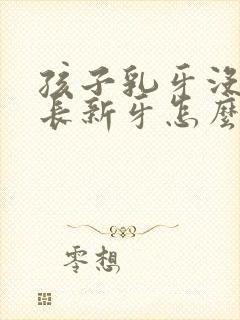 孩子乳牙没
长新牙怎麼
零想